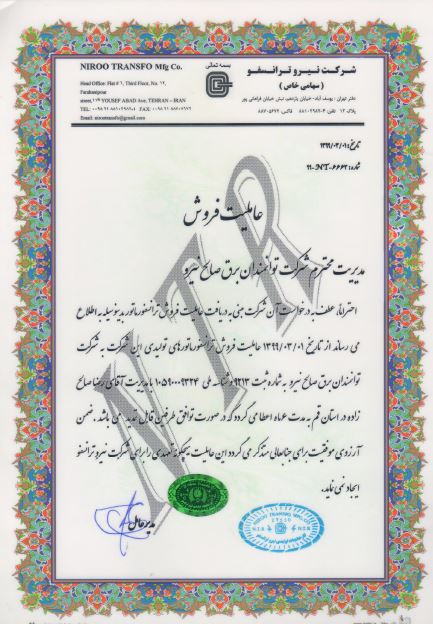 NIROO TRANSFO Mfg Co.
Head Office: Flat # 1, Third Floor, No. 12,
Farahanipour
street, 11th YOUSEF ABAD Ave, TEHRAN – IRAN
Email: nirootransfo@gmail.com
بسمه تعالی
شرکت نیرو ترانسفو
( سهامی خاص )
دفتر تهران : یوسف آباد - خیابان یازدهم، نبش خیابان فراهانی پور
تاریخ: ۱۳۹۹/۰۳/۰۱
شماره: ۹۹-NT-۶۶۶۲
عاملیت فروش
مدیریت محترم شرکت توانمندان برق صالح نیرو
احتراماً، عطف به درخواست آن شرکت مبنی به دریافت عاملیت فروش ترانسفورماتور بدینوسیله به اطلاع
می رساند از تاریخ ۱۳۹۹/۰۳/۰۱ عاملیت فروش ترانسفورماتورهای تولیدی این شرکت به شرکت
توانمندان برق صالح نیرو به شماره ثبت ۹۲۱۳ و شناسه ملی ۱۰۵۹۰۰۰۹۳۲۴ با مدیریت آقای رضا صالح
زاده در استان قم به مدت ۶ ماه اعطا می گردد که در صورت توافق طرفین قابل تمدید می باشد. ضمن
آرزوی موفقیت برای جنابعالی متذکر می گردد این عاملیت هیچگونه تعهدی را برای شرکت نیرو ترانسفو
ایجاد نمی نماید.
مدیر عامل
NIROO TRANSFO MFG.CO.
NTR